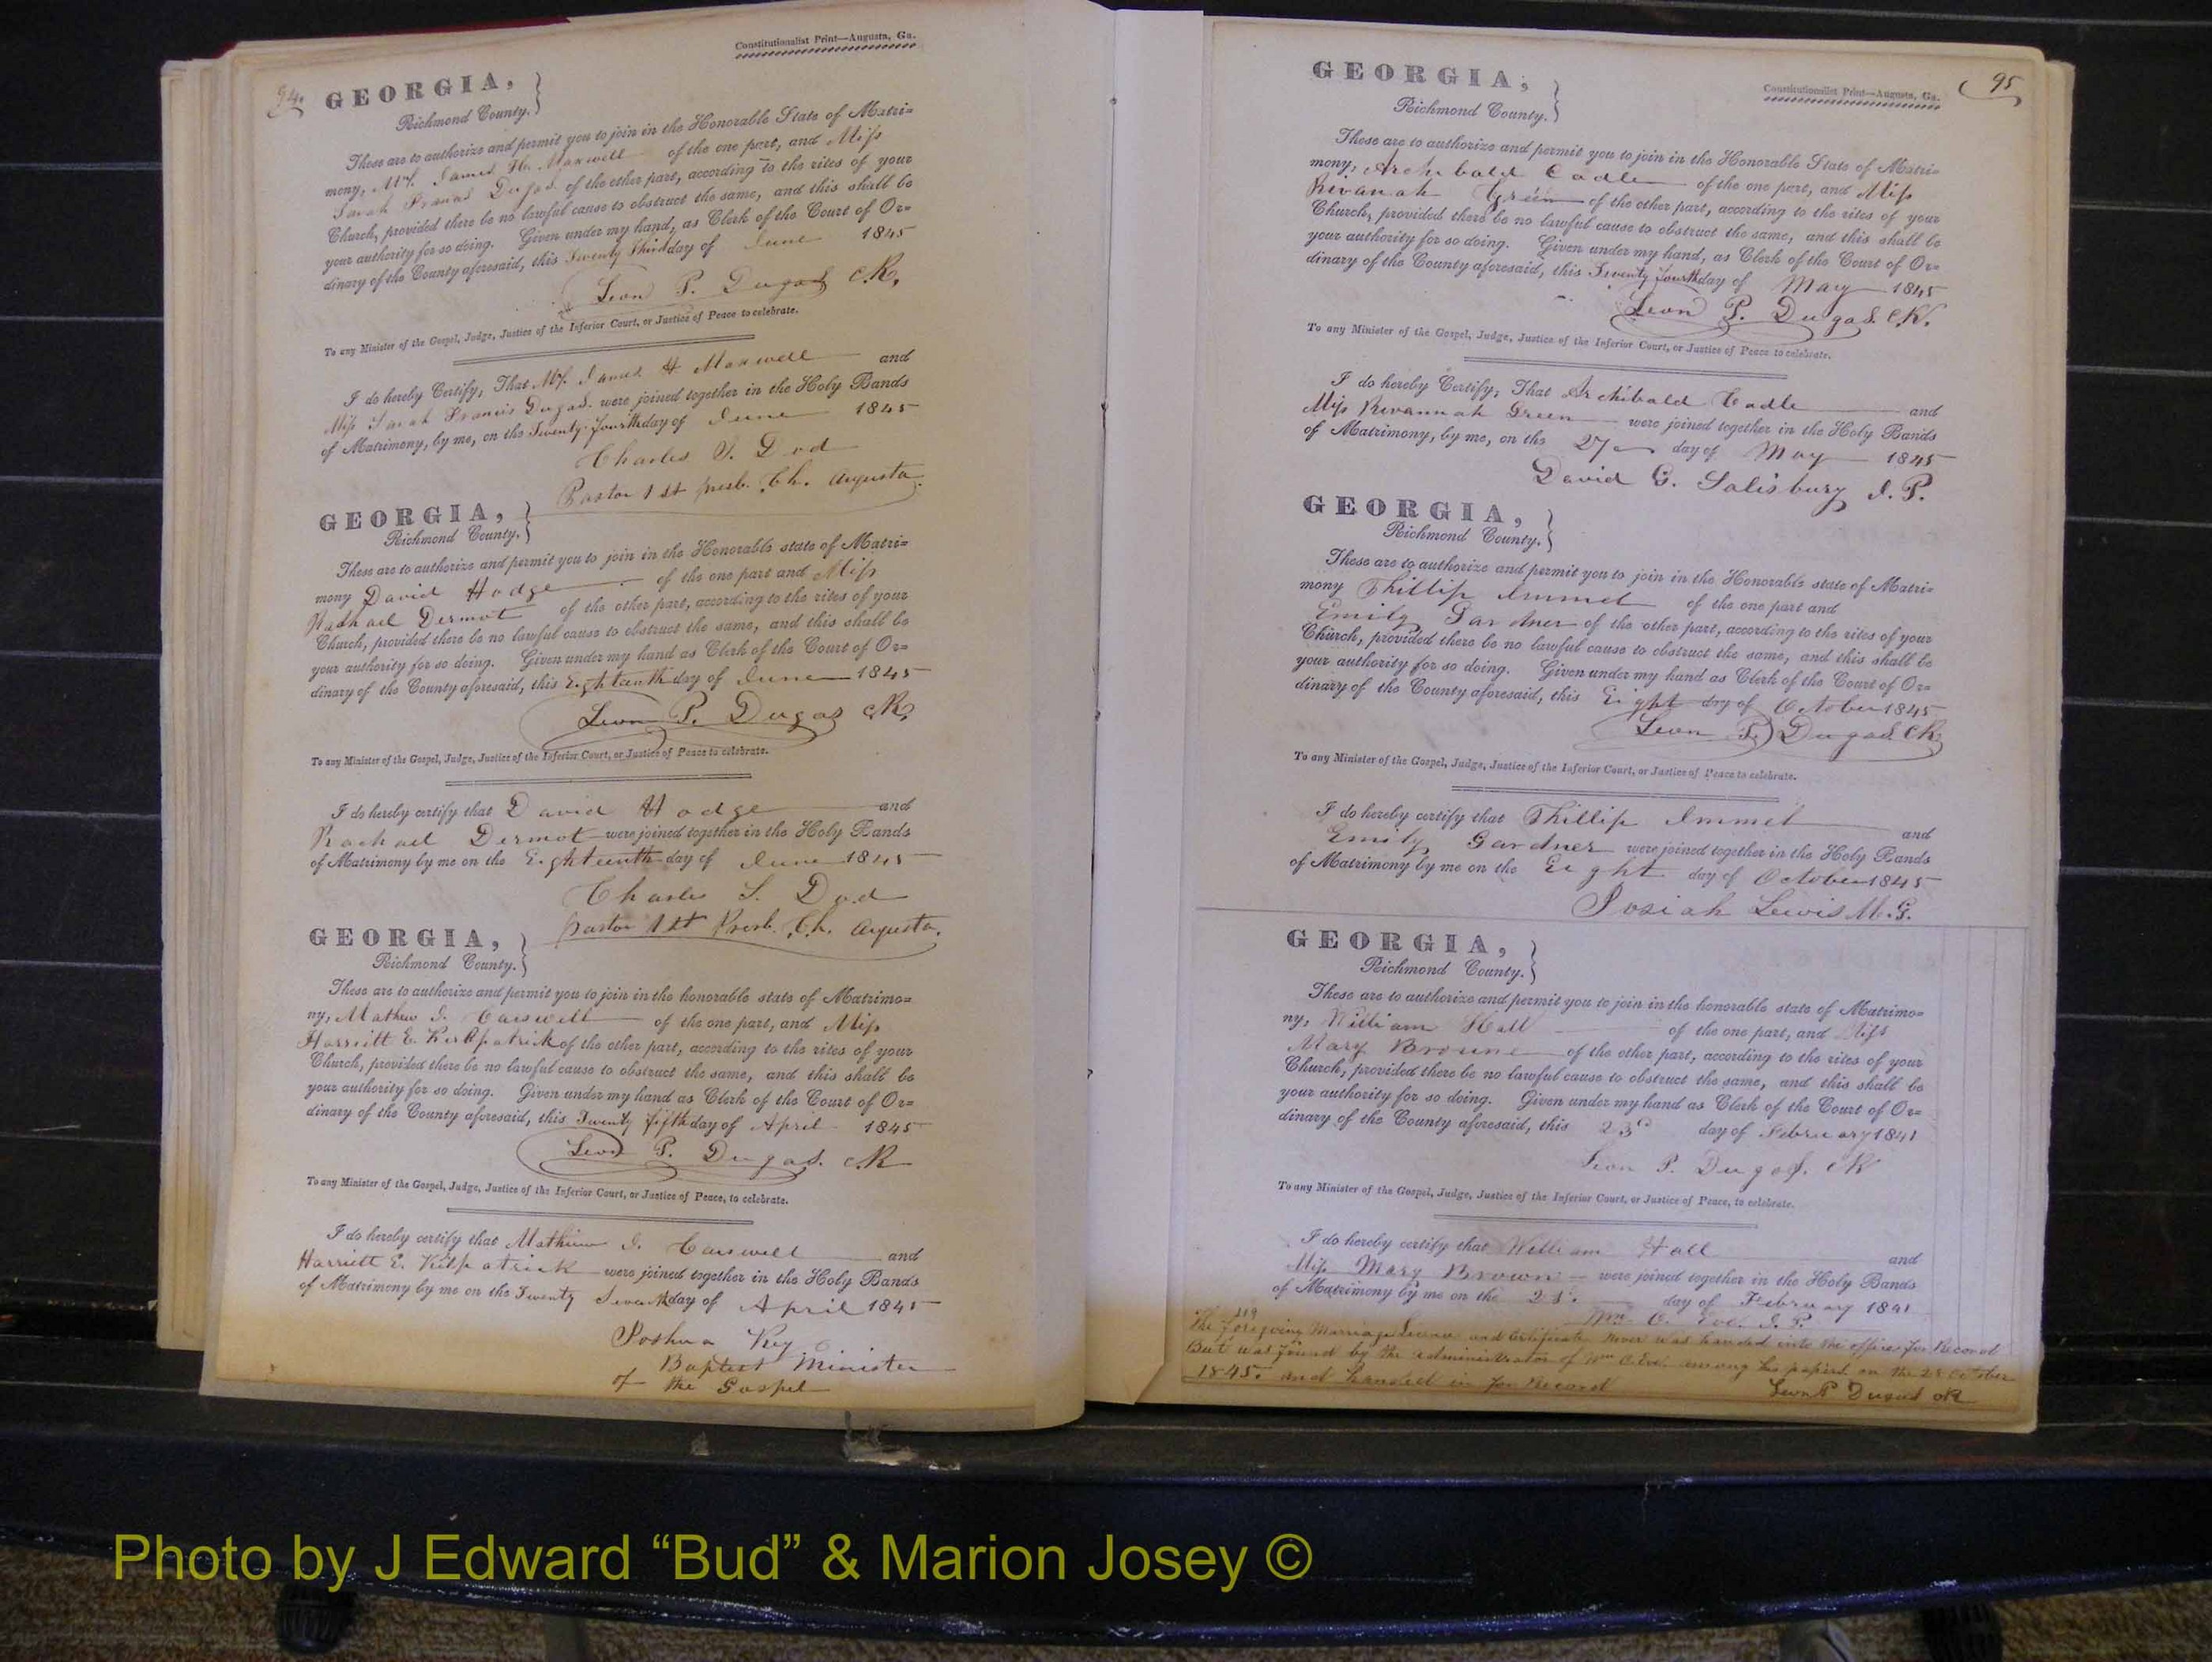 94.
Constitutionalist Print—Augusta, Ga.
GEORGIA,
Richmond County.
These are to authorize and permit you to join in the Honorable State of Matri=
mony, Mr. James H. Maxwell of the one part, and Miss
Sarah Francis Dugas of the other part, according to the rites of your
Church, provided there be no lawful cause to obstruct the same, and this shall be
your authority for so doing. Given under my hand, as Clerk of the Court of Or=
dinary of the County aforesaid, this Twenty Third day of June 1845
Leon P. Dugas C.K.
To any Minister of the Gospel, Judge, Justice of the Inferior Court, or Justice of Peace to celebrate.
I do hereby Certify, That Mr. James H Maxwell and
Miss Sarah Francis Dugas were joined together in the Holy Bands
of Matrimony, by me, on the Twenty-fourth day of June 1845
Charles S. Dod
Pastor 1st presb. Ch. Augusta.
GEORGIA,
Richmond County.
These are to authorize and permit you to join in the Honorable state of Matri=
mony David Hodge of the one part and Miss
Rachael Dermot of the other part, according to the rites of your
Church, provided there be no lawful cause to obstruct the same, and this shall be
your authority for so doing. Given under my hand as Clerk of the Court of Or=
dinary of the County aforesaid, this Eighteenth day of June 1845
Leon P. Dugas CK
To any Minister of the Gospel, Judge, Justice of the Inferior Court, or Justice of Peace to celebrate.
I do hereby certify that David Hodge and
Rachael Dermot were joined together in the Holy Bands
of Matrimony by me on the Eighteenth day of June 1845
Charles S. Dod
pastor 1st Presb. Ch. Augusta.
GEORGIA,
Richmond County.
These are to authorize and permit you to join in the honorable state of Matrimo=
ny, Mathew J. Carswell of the one part, and Miss
Harriett E. Kirkpatrick of the other part, according to the rites of your
Church, provided there be no lawful cause to obstruct the same, and this shall be
your authority for so doing. Given under my hand as Clerk of the Court of Or=
dinary of the County aforesaid, this Twenty fifth day of April 1845
Leon P. Dugas. CK
To any Minister of the Gospel, Judge, Justice of the Inferior Court, or Justice of Peace, to celebrate.
I do hereby certify that Mathew J. Carswell and
Harriett E. Kilpatrick were joined together in the Holy Bands
of Matrimony by me on the Twenty Seventh day of April 1845
Joshua Key
Baptist Minister
of the Gospel
95
Constitutionalist Print—Augusta, Ga.
GEORGIA,
Richmond County.
These are to authorize and permit you to join in the Honorable State of Matri=
mony, Archibald Cadle of the one part, and Miss
Rivanah Green of the other part, according to the rites of your
Church, provided there be no lawful cause to obstruct the same, and this shall be
your authority for so doing. Given under my hand, as Clerk of the Court of Or=
dinary of the County aforesaid, this Twenty fourth day of May 1845
Leon P. Dugas. C.K.
To any Minister of the Gospel, Judge, Justice of the Inferior Court, or Justice of Peace to celebrate.
I do hereby Certify, That Archibald Cadle and
Miss Rivannah Green were joined together in the Holy Bands
of Matrimony, by me, on the 27 day of May 1845
David G. Salisbury J.P.
GEORGIA,
Richmond County.
These are to authorize and permit you to join in the Honorable state of Matri=
mony Phillip Immel of the one part and
Emily Gardner of the other part, according to the rites of your
Church, provided there be no lawful cause to obstruct the same, and this shall be
your authority for so doing. Given under my hand as Clerk of the Court of Or=
dinary of the County aforesaid, this Eight day of October 1845
Leon P. Dugas. CK
To any Minister of the Gospel, Judge, Justice of the Inferior Court, or Justice of Peace to celebrate.
I do hereby certify that Phillip Immel and
Emily Gardner were joined together in the Holy Bands
of Matrimony by me on the Eight day of October 1845
Josiah Lewis M.G.
GEORGIA,
Richmond County.
These are to authorize and permit you to join in the honorable state of Matrimo=
ny, William Hall of the one part, and Miss
Mary Browne of the other part, according to the rites of your
Church, provided there be no lawful cause to obstruct the same, and this shall be
your authority for so doing. Given under my hand as Clerk of the Court of Or=
dinary of the County aforesaid, this 23d day of February 1841
Leon P. Dugas. CK
To any Minister of the Gospel, Judge, Justice of the Inferior Court, or Justice of Peace, to celebrate.
I do hereby certify that William Hall and
Miss Mary Brown were joined together in the Holy Bands
of Matrimony by me on the day of February 1841
Wm C. Eve. J.P.
The foregoing Marriage License and Certificate never was handed into the office for Record
But was found by the administrator of Wm C. Eve. among his papers on the 28 October
1845. and handed in for Record
Leon P Dugas CK
Photo by J Edward “Bud” & Marion Josey ©